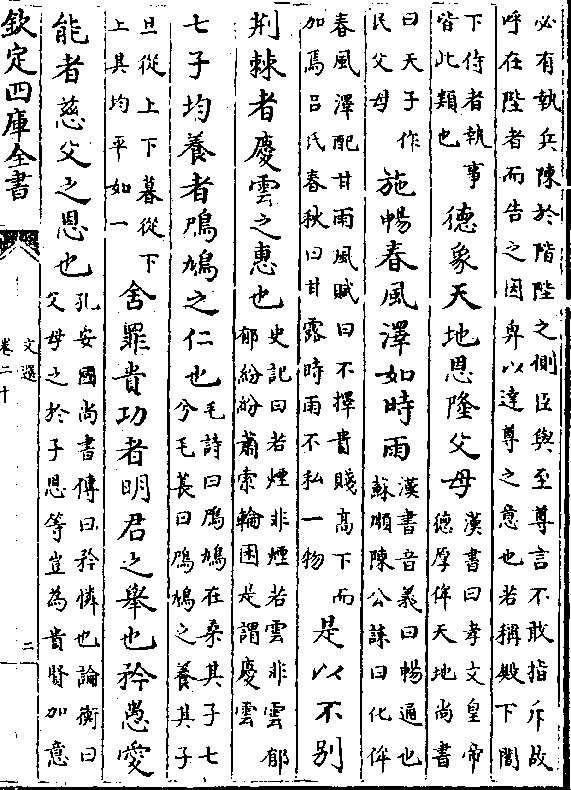 必有執兵陳於階陛之側臣與至尊言不敢指斥故
呼在陛者而告之因卑以達尊之意也若稱殿下閣
下侍者執事
皆此類也
德象天地恩隆父母
漢書曰孝文皇帝
德厚侔天地尚書
曰天子作
民父母
施暢春風澤如時雨
漢書音義曰暢通也
蘇順陳公誄曰化侔
春風澤配甘雨風賦曰不擇貴賤高下而
加焉呂氏春秋曰甘露時雨不私一物
是以不别
荆棘者慶雲之惠也
史記曰若煙非煙若雲非雲郁
郁紛紛蕭索輪囷是謂慶雲
七子均養者鳲鳩之仁也
毛詩曰鳲鳩在桑其子七
兮毛萇曰鳲鳩之養其子
旦從上下暮從下
上其均平如一
舍罪責功者明君之舉也矜愚愛
能者慈父之恩也
孔安國尚書傳曰矜憐也論衡曰
父母之於子恩等豈為貴賢加意
欽定四庫全書
文選
卷二十
二